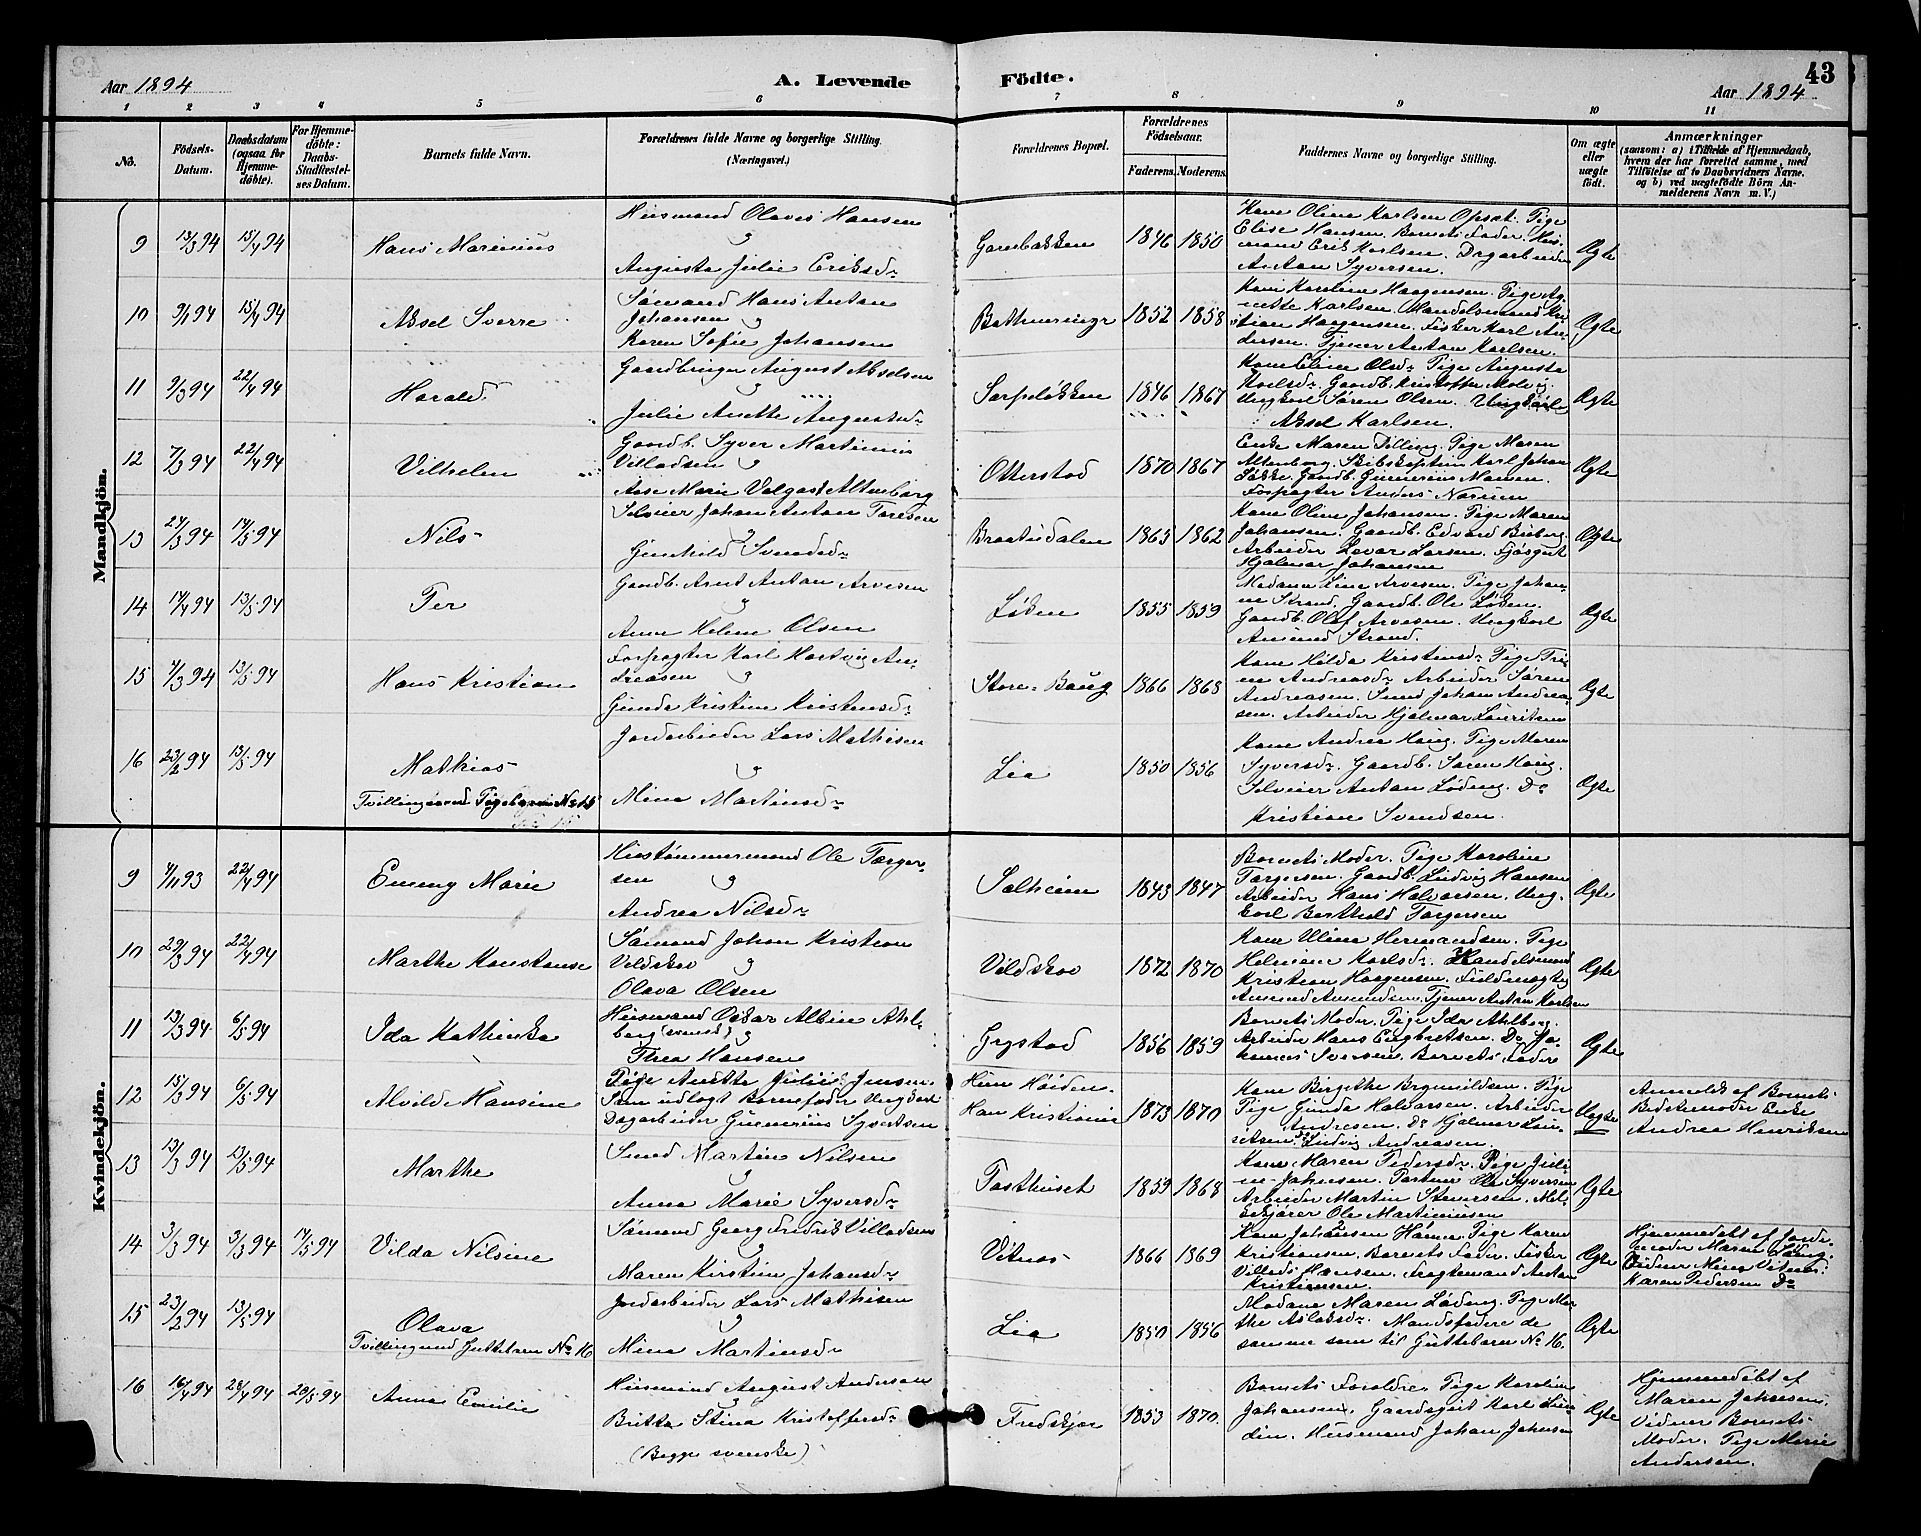 43
Aar 1894
A. Levende Fødte.
Aar 1894
1 2 3 4 5 6 7 8 9 10 11
No.
Fødsels-Datum.
Daabsdatum (ogsaa for Hjemmedøbte).
For Hjemmedøbte: Daabs-Stadfæstelses Datum.
Barnets fulde Navn.
Forældrenes fulde Navne og borgerlige Stilling. (Næringsvei.)
Forældrenes Bopæl.
Forældrenes Fødselsaar.
Faderens. Moderens.
Faddernes Navne og borgerlige Stilling.
Om ægte eller uægte født.
Anmærkninger
(saasom: a) i Tilfælde af Hjemmedaab,
hvem der har forrettet samme, med
Tilføielse af to Daabsvidners Navne,
og b) ved uægtefødte Børn Anmelderens Navn m. V.)
Mandkjön.
9 13/3 94 15/4 94 Hans Marinius
Husmand Olaves Hansen
og
Augusta Julie Eriksd.
Garnbakken 1846 1850
Kone Oline Karlsen Opsæt. Pige
Elise Hansen. Barnets Fader. Husmand Erik Karlsen. Dagarbeider
Anton Syversen.
Ægte
10 9/1 94 15/4 94 Aksel Sverre
Sømand Hans Anton
Johansen og
Karen Sofie Johansen
1852 1858
Kone Karoline Haagensen. Pige Agnette Karlsen. Handelsmand Kristian Haagensen. Fisker Karl Andersen. Tjener Anton Karlsen.
Ægte
11 9/3 94 22/4 94 Harald
Gaardbruger August Akselsen
og
Julie Anette Augustsd.
Sarpeløkken 1846 1867
Kone Eline Olsd. Pige Augusta
Karlsd. Gaardb. Kristoffer Molvig.
Ungkarl Søren Olsen. Ungkarl
Aksel Karlsen.
Ægte
12 7/3 94 22/4 94 Vilhelm
Gaardb. Syver Martinius
Villadsen og
Aase Marie Valgast Altenborg
Otterstad 1870 1867
Enke Maren Dilling. Pige Maren
Altenborg. Skibskaptein Karl Johan
Gaardb. Gunerius Mamen.
Forpagter Anders Narmen
Ægte
13 27/3 94 14/5 94 Nils
Selveier Johan Anton Toresen
og
Gunhild Svendsd.
Braatesdalen 1863 1862
Kone Oline Johansen. Pige Maren
Johansen. Gaardb. Edvard Buberg.
Arbeider Levar Larsen. Fjøsgut
Hjalmar Johansen
Ægte
14 17/4 94 13/5 94 Per
Gaardb. Arnt Anton Arvesen
og
Anne Helene Olsen
Løken 1855 1859
Madame Lina Arvesen. Pige Johanne Strand. Gaardb. Ole Løken.
Gaardb. Olaf Arvesen. Ungkarl
Amund Strand.
Ægte
15 7/3 94 13/5 94 Hans Kristian
Forpagter Karl Hartvig Andreasen og
Gunda Kristine Kristensd.
Store-Baug 1866 1868
Kone Hilda Kristensd. Pige Trine Andreasd. Arbeider Søren
Andreasen. Smed Johan Andreasen. Arbeider Hjalmar Lauritsen
Ægte
16 23/2 94 13/5 94 Mathias
Tvilling med Pigebarn No 15
Jordarbeider Lars Mathisen
og
Mina Martinsd.
Lia 1850 1856
Kone Andrea Haug. Pige Maren
Syversd. Gaardb. Søren Haug.
Selveier Anton Løding. Do
Kristian Svendsen.
Ægte
Kvindekjön.
9 4/11 93 22/4 94 Emmy Marie
Hustømmermand Ole Torgersen og
Andrea Nilsd.
Solheim 1843 1847
Barnets Moder. Pige Karoline
Torgersen. Gaardb. Ludvig Hansen
Arbeider Hans Halvorsen. Ungkarl Berthold Torgersen
Ægte
10 29/3 94 22/4 94 Marthe Konstanse
Sømand Johan Kristian
Vildskov og
Olava Olsen
Vildskov 1872 1870
Kone Ulina Hermandsen. Pige
Helmine Karlsd. Handelsmand
Kristian Haagensen. Fuldmægtig
Amund Amundsen. Tjener Anton Karlsen
Ægte
11 13/3 94 6/5 94 Ida Kathinka
Husmand Oskar Albin Ahlberg (svensk) og
Thea Hansen
Grystad 1856 1859
Barnets Moder. Pige Ida Ahlberg.
Arbeider Hans Engbretsen. Do Johannes Svensen. Barnets Fader
Ægte
12 15/3 94 6/5 94 Alvilde Hansine
Pige Anette Julie Jensen.
Som udlagt Barnefader Ungkarl
Dagarbeider Gunerius Syvertsen
Hun Høiden.
Han Kristiania 1873 1870
Kone Birgithe Brynnildsen. Pige
Pige Gunda Halvorsen. Arbeider
Andresen. Do Hjalmar Lauritsen. Do Ludvig Andreasen.
Uægte
Anmeldt af Barnets
Bedstemoder Enke
Andrea Henriksen
13 13/3 94 13/5 94 Marthe
Smed Martin Nilsen
og
Anna Marie Syversd.
Posthuset 1859 1868
Kone Maren Pedersd. Pige Juline Johnsen. Partner Ole Syversen
Arbeider Martin Stenersen. Melkekjører Ole Martiniusen
Ægte
14 3/3 94 3/3 94 14/5 94 Vilda Nilsine
Sømand Georg Fredrik Villadsen
og
Maren Kirstine Johansd.
Vitnes 1866 1869
Kone Johanne Hansen. Pige Karen
Kristiansen. Barnets Fader. Fisker
Villads Hansen. Fragtemand Anton
Kristiansen
Ægte
Hjemmedøbt af Jordemoder Maren Løding.
Vidner Mina Vitnes.
Karen Pedersen Do
15 23/2 94 13/5 94 Olava
Tvilling med Guttebarn No 16
Jordarbeider Lars Mathisen
og
Mina Martinsd.
Lia 1850 1856
Madame Maren Løding. Pige Marthe Aslaksd. Mandsfaddere de
samme som til Guttebarn No 16.
Ægte
16 16/4 94 28/4 94 20/5 94 Anna Emilie
Husmand August Anderson
Britta Stina Kristoffersd.
(Begge svenske)
Fredskjær 1853 1870.
Barnets Forældre. Pige Karoline
Johansen. Gaardsgut Karl Lindin. Husmand Johan Johnsen
Ægte
Hjemmedøbt af
Maren Johnsen.
Vidner Barnets
Moder. Pige Marie
Andersen.